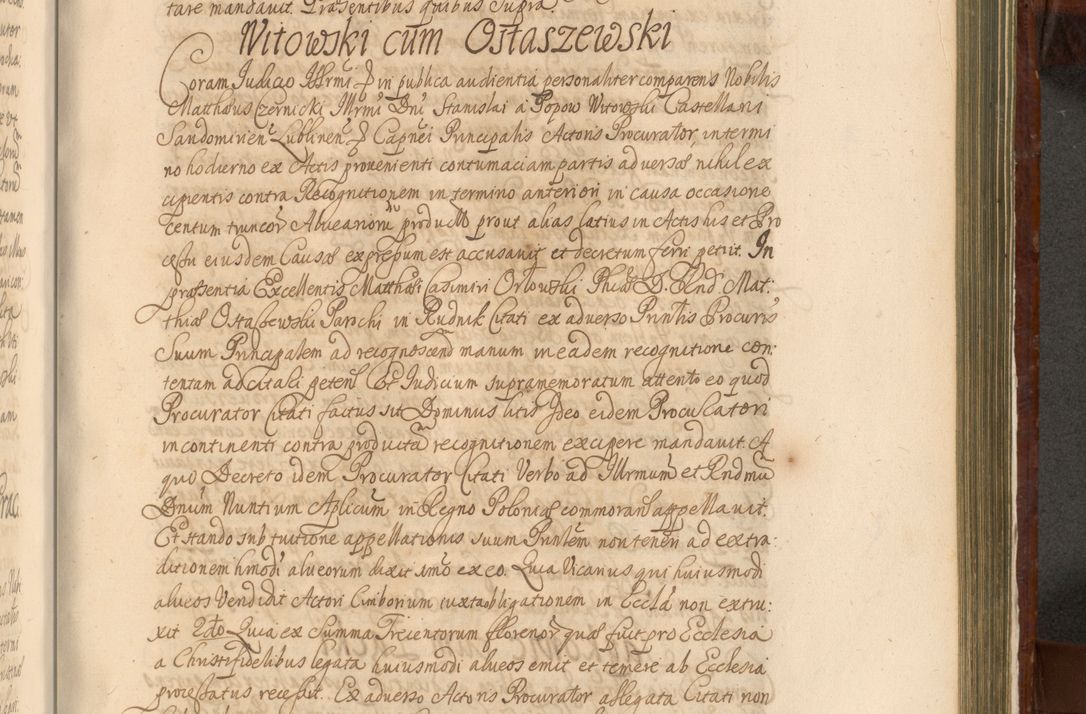 tare mandavit. Præsentibus quibus supra.
Witowski cum Ostaszewski
Coram Judicio Illrmi P in publica audientia personaliter comparens Nobilis
Matthæus Czernicki Illrmi Dni Stanislai a Popow Witowski Castellani
Sandomirien Lublinen P Capnei Principalis Actoris Procurator, in termi
no hodierno ex Actis provenienti contumaciam partis adversæ nihil ex
cipientis contra Recognitionem in termino anteriori in causa occasione
centum truncor Alveariorum product prout alias latius in Actis his et Pro
cessu eiusdem Causæ expressum est accusavit et decretum ferri petiit. In
præsentia Excellentis Matthæi Casimiri Orlowski Phiæ D. Rnd Mat:
thiæ Ostaszewski Parochi in Rudnik Citati ex adverso Prinlis Procuris
Suum Principalem ad recognoscend manum in eadem recognitione con:
tentam ad citati peten Et Judicium supramemoratum attento eo quod
Procurator Citati factus sit Dominus litis Ideo eidem Procuratori
in continenti contra productã recognitionem excipere mandavit. A
quo Decreto idem Procurator Citati Verbo ad Illrmum et Rndmũ
Dnum Nuntium Aplicum in Regno Poloniæ commoran appellavit.
Et stando sub tuitione appellationis suum Prinlem non teneri ad extra:
ditionem hmodi alveorum dixit imo ex eo. Quia Vicanus qui huiusmodi
alveos Vendidit Actori Ciniborium iuxta obligationem in Eccla non extru:
xit 2do Quia ex summa Trecentorum florenor quæ fuit pro Ecclesia
a Christifidelibus legata huiusmodi alveos emit et temere ab Ecclesia
processatus recessit. Ex adverso Actoris Procurator allegata Citati non